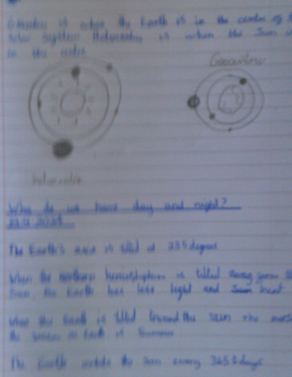 is when the Earth is in the center of
solar system Heliocentric is when the Sun
in the center
Geocentric
Heliocentric
Why do we have day and night?
The Earth's axis is tilted at 23.5 degrees
When the northern hemisphere is tilted away from
the Earth has less light and heat
When the Earth is tilted toward the sun the
the season in Earth is Summer
The Earth orbits the sun every 365. days